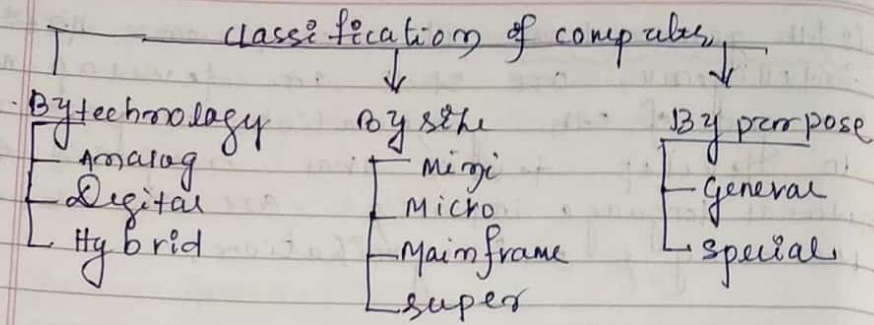 classification of computer
By technology
Analog
Digital
Hybrid
By size
Mini
Micro
Mainframe
super
By purpose
General
special